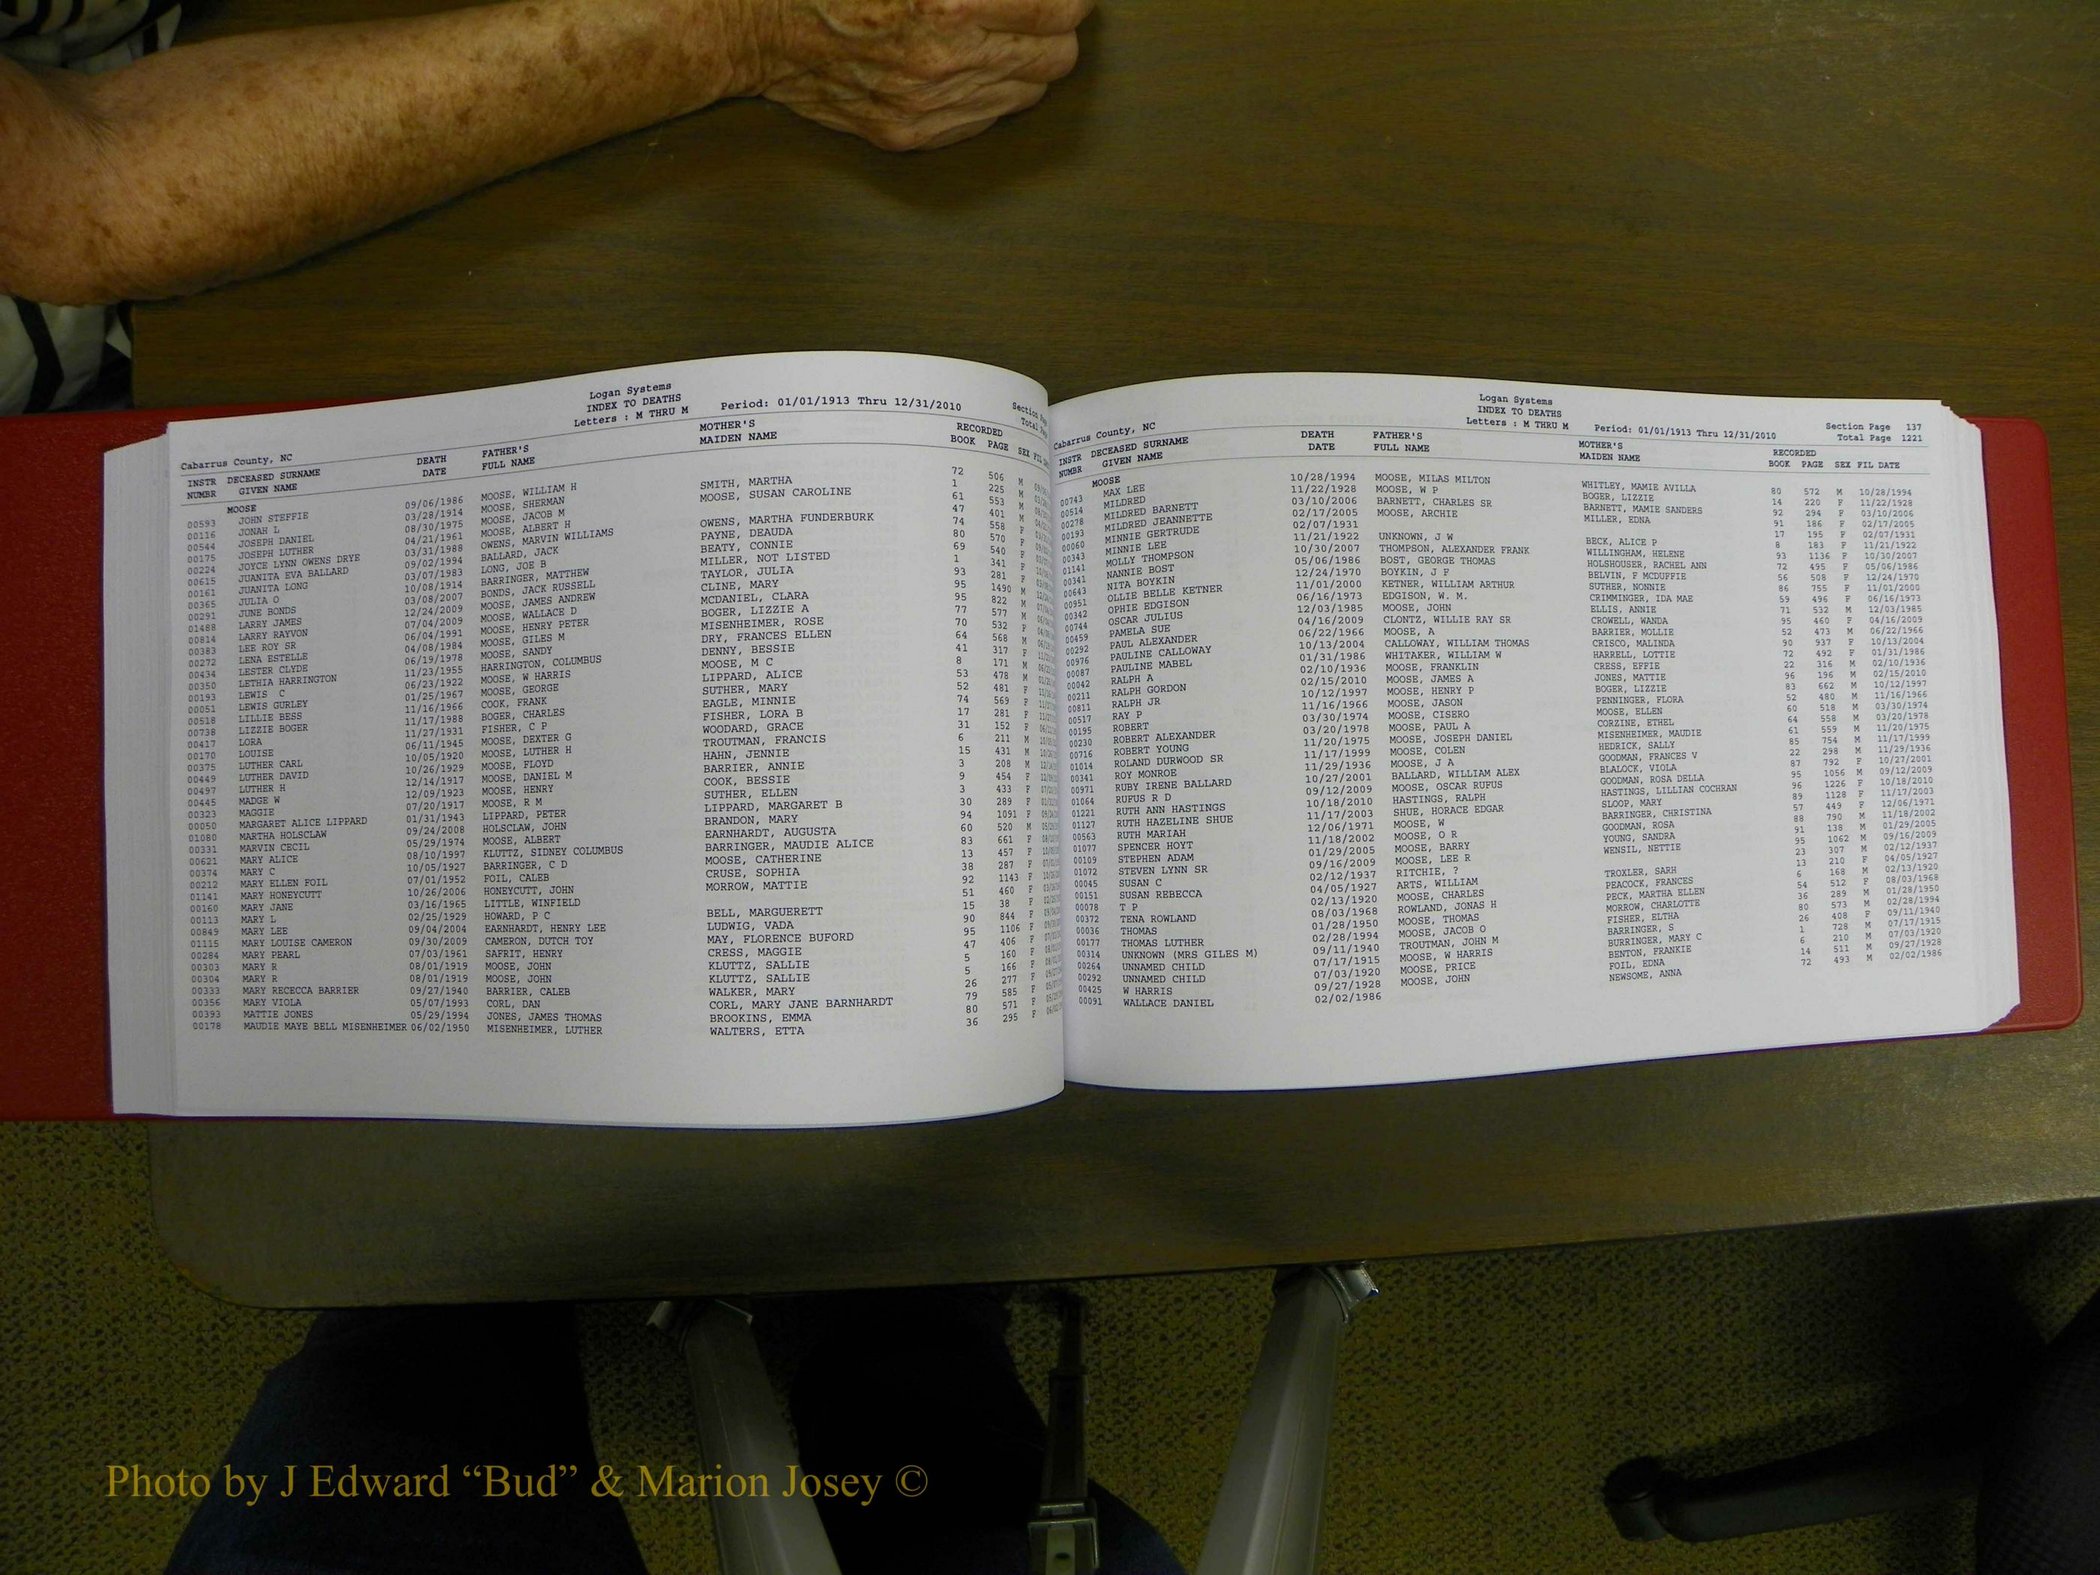 Logan Systems
INDEX TO DEATHS
Letters : M THRU M Period: 01/01/1913 Thru 12/31/2010
Cabarrus County, NC
INSTR DECEASED SURNAME DEATH FATHER'S MOTHER'S RECORDED
NUMBR GIVEN NAME DATE FULL NAME MAIDEN NAME BOOK PAGE SEX
MOOSE
00593 JOHN STEFFIE 09/06/1986 MOOSE, WILLIAM H 72 506 M
00116 JONAH L 03/28/1914 MOOSE, SHERMAN SMITH, MARTHA 1 225 M
00544 JOSEPH DANIEL 08/30/1975 MOOSE, JACOB M MOOSE, SUSAN CAROLINE 61 553 M
00175 JOSEPH LUTHER 04/21/1961 MOOSE, ALBERT H 47 401 M
00224 JOYCE LYNN OWENS DRYE 03/31/1988 OWENS, MARVIN WILLIAMS OWENS, MARTHA FUNDERBURK 74 558 F
00615 JUANITA EVA BALLARD 09/02/1994 BALLARD, JACK PAYNE, DEAUDA 80 570 F
00161 JUANITA LONG 03/07/1983 LONG, JOE B BEATY, CONNIE 69 540 F
00365 JULIA O 10/08/1914 BARRINGER, MATTHEW MILLER, NOT LISTED 1 341 F
00291 JUNE BONDS 03/08/2007 BONDS, JACK RUSSELL TAYLOR, JULIA 93 281 F
01488 LARRY JAMES 12/24/2009 MOOSE, JAMES ANDREW CLINE, MARY 95 1490 M
00814 LARRY RAYVON 07/04/2009 MOOSE, WALLACE D MCDANIEL, CLARA 95 822 M
00383 LEE ROY SR 06/04/1991 MOOSE, HENRY PETER BOGER, LIZZIE A 77 577 M
00272 LENA ESTELLE 04/08/1984 MOOSE, GILES M MISENHEIMER, ROSE 70 532 F
00434 LESTER CLYDE 06/19/1978 MOOSE, SANDY DRY, FRANCES ELLEN 64 568 M
00350 LETHIA HARRINGTON 11/23/1955 HARRINGTON, COLUMBUS DENNY, BESSIE 41 317 F
00193 LEWIS C 06/23/1922 MOOSE, W HARRIS MOOSE, M C 8 171 M
00051 LEWIS GURLEY 01/25/1967 MOOSE, GEORGE LIPPARD, ALICE 53 478 M
00518 LILLIE BESS 11/16/1966 COOK, FRANK SUTHER, MARY 52 481 F
00738 LIZZIE BOGER 11/17/1988 BOGER, CHARLES EAGLE, MINNIE 74 569 F
00417 LORA 11/27/1931 FISHER, C P FISHER, LORA B 17 281 F
00170 LOUISE 06/11/1945 MOOSE, DEXTER G WOODARD, GRACE 31 152 F
00375 LUTHER CARL 10/05/1920 MOOSE, LUTHER H TROUTMAN, FRANCIS 6 211 M
00449 LUTHER DAVID 10/26/1929 MOOSE, FLOYD HAHN, JENNIE 15 431 M
00497 LUTHER H 12/14/1917 MOOSE, DANIEL M BARRIER, ANNIE 3 208 M
00445 MADGE W 12/09/1923 MOOSE, HENRY COOK, BESSIE 9 454 F
00323 MAGGIE 07/20/1917 MOOSE, R M SUTHER, ELLEN 3 433 F
00050 MARGARET ALICE LIPPARD 01/31/1943 LIPPARD, PETER LIPPARD, MARGARET B 30 289 F
01080 MARTHA HOLSCLAW 09/24/2008 HOLSCLAW, JOHN BRANDON, MARY 94 1091 F
00331 MARVIN CECIL 05/29/1974 MOOSE, ALBERT EARNHARDT, AUGUSTA 60 520 M
00621 MARY ALICE 08/10/1997 KLUTTZ, SIDNEY COLUMBUS BARRINGER, MAUDIE ALICE 83 661 F
00374 MARY C 10/05/1927 BARRINGER, C D MOOSE, CATHERINE 13 457 F
00212 MARY ELLEN FOIL 07/01/1952 FOIL, CALEB CRUSE, SOPHIA 38 287 F
01141 MARY HONEYCUTT 10/26/2006 HONEYCUTT, JOHN MORROW, MATTIE 92 1143 F
00160 MARY JANE 03/16/1965 LITTLE, WINFIELD 51 460 F
00113 MARY L 02/25/1929 HOWARD, P C BELL, MARGUERETT 15 38 F
00849 MARY LEE 09/04/2004 EARNHARDT, HENRY LEE LUDWIG, VADA 90 844 F
01115 MARY LOUISE CAMERON 09/30/2009 CAMERON, DUTCH TOY MAY, FLORENCE BUFORD 95 1106 F
00284 MARY PEARL 07/03/1961 SAFRIT, HENRY CRESS, MAGGIE 47 406 F
00303 MARY R 08/01/1919 MOOSE, JOHN KLUTTZ, SALLIE 5 160 F
00304 MARY R 08/01/1919 MOOSE, JOHN KLUTTZ, SALLIE 5 166 F
00333 MARY RECECCA BARRIER 09/27/1940 BARRIER, CALEB WALKER, MARY 26 277 F
00356 MARY VIOLA 05/07/1993 CORL, DAN CORL, MARY JANE BARNHARDT 79 585 F
00393 MATTIE JONES 05/29/1994 JONES, JAMES THOMAS BROOKINS, EMMA 80 571 F
00178 MAUDIE MAYE BELL MISENHEIMER 06/02/1950 MISENHEIMER, LUTHER WALTERS, ETTA 36 295 F
Logan Systems
INDEX TO DEATHS
Letters : M THRU M Period: 01/01/1913 Thru 12/31/2010
Section Page 137
Total Page 1221
Cabarrus County, NC
INSTR DECEASED SURNAME DEATH FATHER'S MOTHER'S RECORDED
NUMBR GIVEN NAME DATE FULL NAME MAIDEN NAME BOOK PAGE SEX FIL DATE
MOOSE
00743 MAX LEE 10/28/1994 MOOSE, MILAS MILTON WHITLEY, MAMIE AVILLA 80 572 M 10/28/1994
00514 MILDRED 11/22/1928 MOOSE, W P BOGER, LIZZIE 14 220 F 11/22/1928
00278 MILDRED BARNETT 03/10/2006 BARNETT, CHARLES SR BARNETT, MAMIE SANDERS 92 294 F 03/10/2006
00193 MILDRED JEANNETTE 02/17/2005 MOOSE, ARCHIE MILLER, EDNA 91 186 F 02/17/2005
00060 MINNIE GERTRUDE 02/07/1931 17 195 F 02/07/1931
00343 MINNIE LEE 11/21/1922 UNKNOWN, J W BECK, ALICE P 8 183 F 11/21/1922
01141 MOLLY THOMPSON 10/30/2007 THOMPSON, ALEXANDER FRANK WILLINGHAM, HELENE 93 1136 F 10/30/2007
00341 NANNIE BOST 05/06/1986 BOST, GEORGE THOMAS HOLSHOUSER, RACHEL ANN 72 495 F 05/06/1986
00643 NITA BOYKIN 12/24/1970 BOYKIN, J F BELVIN, F MCDUFFIE 56 508 F 12/24/1970
00951 OLLIE BELLE KETNER 11/01/2000 KETNER, WILLIAM ARTHUR SUTHER, NONNIE 86 755 F 11/01/2000
00342 OPHIE EDGISON 06/16/1973 EDGISON, W. M. CRIMMINGER, IDA MAE 59 496 F 06/16/1973
00744 OSCAR JULIUS 12/03/1985 MOOSE, JOHN ELLIS, ANNIE 71 532 M 12/03/1985
00459 PAMELA SUE 04/16/2009 CLONTZ, WILLIE RAY SR CROWELL, WANDA 95 460 F 04/16/2009
00292 PAUL ALEXANDER 06/22/1966 MOOSE, A BARRIER, MOLLIE 52 473 M 06/22/1966
00976 PAULINE CALLOWAY 10/13/2004 CALLOWAY, WILLIAM THOMAS CRISCO, MALINDA 90 937 F 10/13/2004
00087 PAULINE MABEL 01/31/1986 WHITAKER, WILLIAM W HARRELL, LOTTIE 72 492 F 01/31/1986
00042 RALPH A 02/10/1936 MOOSE, FRANKLIN CRESS, EFFIE 22 316 M 02/10/1936
00211 RALPH GORDON 02/15/2010 MOOSE, JAMES A JONES, MATTIE 96 196 M 02/15/2010
00811 RALPH JR 10/12/1997 MOOSE, HENRY P BOGER, LIZZIE 83 662 M 10/12/1997
00517 RAY P 11/16/1966 MOOSE, JASON PENNINGER, FLORA 52 480 M 11/16/1966
00195 ROBERT 03/30/1974 MOOSE, CISERO MOOSE, ELLEN 60 518 M 03/30/1974
00230 ROBERT ALEXANDER 03/20/1978 MOOSE, PAUL A CORZINE, ETHEL 64 558 M 03/20/1978
00716 ROBERT YOUNG 11/20/1975 MOOSE, JOSEPH DANIEL MISENHEIMER, MAUDIE 61 559 M 11/20/1975
01014 ROLAND DURWOOD SR 11/17/1999 MOOSE, COLEN HEDRICK, SALLY 85 754 M 11/17/1999
00341 ROY MONROE 11/29/1936 MOOSE, J A GOODMAN, FRANCES V 22 298 M 11/29/1936
00971 RUBY IRENE BALLARD 10/27/2001 BALLARD, WILLIAM ALEX BLALOCK, VIOLA 87 792 F 10/27/2001
01064 RUFUS R D 09/12/2009 MOOSE, OSCAR RUFUS GOODMAN, ROSA DELLA 95 1056 M 09/12/2009
01221 RUTH ANN HASTINGS 10/18/2010 HASTINGS, RALPH HASTINGS, LILLIAN COCHRAN 96 1226 F 10/18/2010
01127 RUTH HAZELINE SHUE 11/17/2003 SHUE, HORACE EDGAR SLOOP, MARY 89 1128 F 11/17/2003
00563 RUTH MARIAH 12/06/1971 MOOSE, W BARRINGER, CHRISTINA 57 449 F 12/06/1971
01077 SPENCER HOYT 11/18/2002 MOOSE, O R GOODMAN, ROSA 88 790 M 11/18/2002
00109 STEPHEN ADAM 01/29/2005 MOOSE, BARRY YOUNG, SANDRA 91 138 M 01/29/2005
01072 STEVEN LYNN SR 09/16/2009 MOOSE, LEE R WENSIL, NETTIE 95 1062 M 09/16/2009
00045 SUSAN C 02/12/1937 RITCHIE, ? 23 307 M 02/12/1937
00151 SUSAN REBECCA 04/05/1927 ARTS, WILLIAM TROXLER, SARH 13 210 F 04/05/1927
00078 T P 02/13/1920 MOOSE, CHARLES PEACOCK, FRANCES 6 168 M 02/13/1920
00372 TENA ROWLAND 08/03/1968 ROWLAND, JONAS H PECK, MARTHA ELLEN 54 512 F 08/03/1968
00036 THOMAS 01/28/1950 MOOSE, THOMAS MORROW, CHARLOTTE 36 289 M 01/28/1950
00177 THOMAS LUTHER 02/28/1994 MOOSE, JACOB O FISHER, ELTHA 80 573 M 02/28/1994
00314 UNKNOWN (MRS GILES M) 09/11/1940 TROUTMAN, JOHN M BARRINGER, S 26 408 F 09/11/1940
00264 UNNAMED CHILD 07/17/1915 MOOSE, W HARRIS BURRINGER, MARY C 1 728 M 07/17/1915
00292 UNNAMED CHILD 07/03/1920 MOOSE, PRICE BENTON, FRANKIE 6 210 M 07/03/1920
00425 W HARRIS 09/27/1928 MOOSE, JOHN FOIL, EDNA 14 511 M 09/27/1928
00091 WALLACE DANIEL 02/02/1986 NEWSOME, ANNA 72 493 M 02/02/1986
Photo by J Edward “Bud” & Marion Josey ©